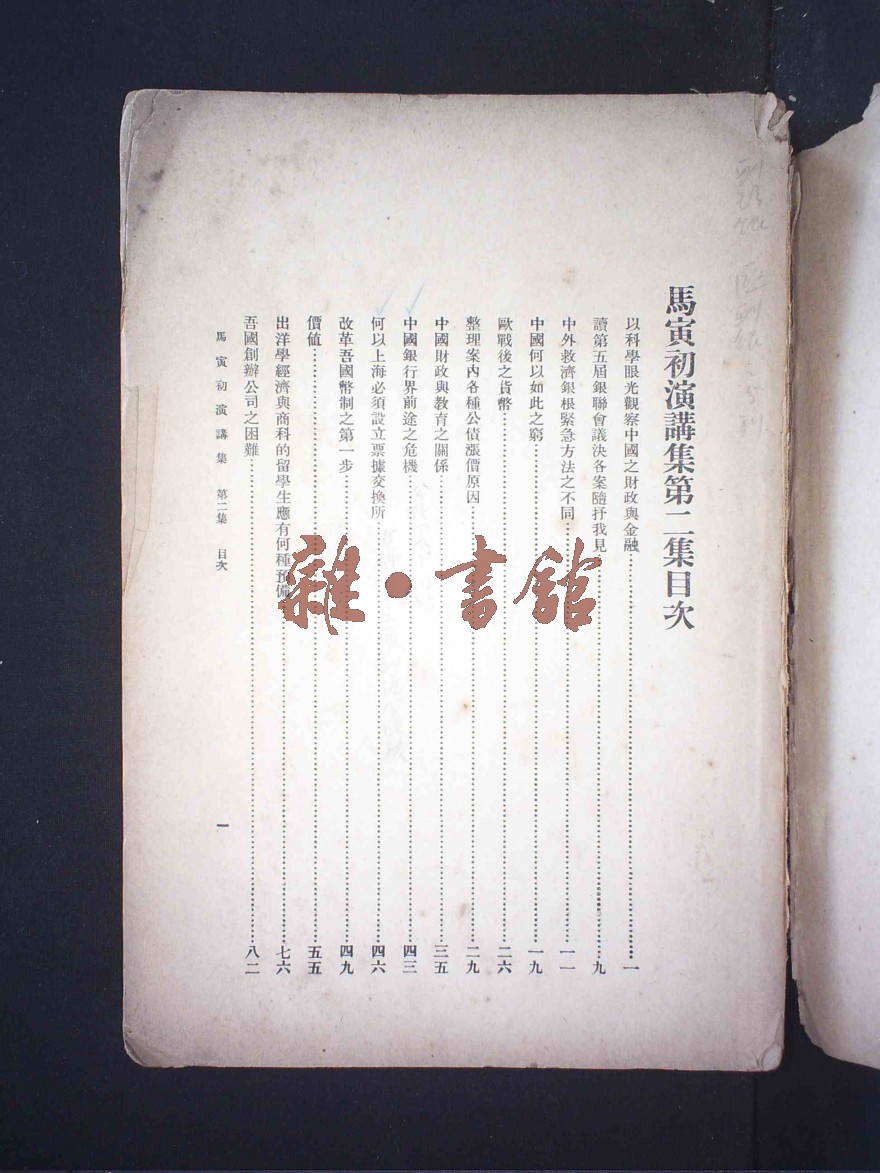 馬寅初演講集第二集目次
以科學眼光觀察中國之財政與金融……一
讀第五屆銀聯會議決各案隨抒我見……九
中外救濟銀根緊急方法之不同……一一
中國何以如此之窮……一九
歐戰後之貨幣……二六
整理案內各種公債漲價原因……二九
中國財政與教育之關係……三五
中國銀行界前途之危機……四三
何以上海必須設立票據交換所……四六
改革吾國幣制之第一步……四九
價值……五五
出洋學經濟與商科的留學生應有何種預備……七六
吾國創辦公司之困難……八二
馬寅初演講集 第二集 目次 一
雜·書館